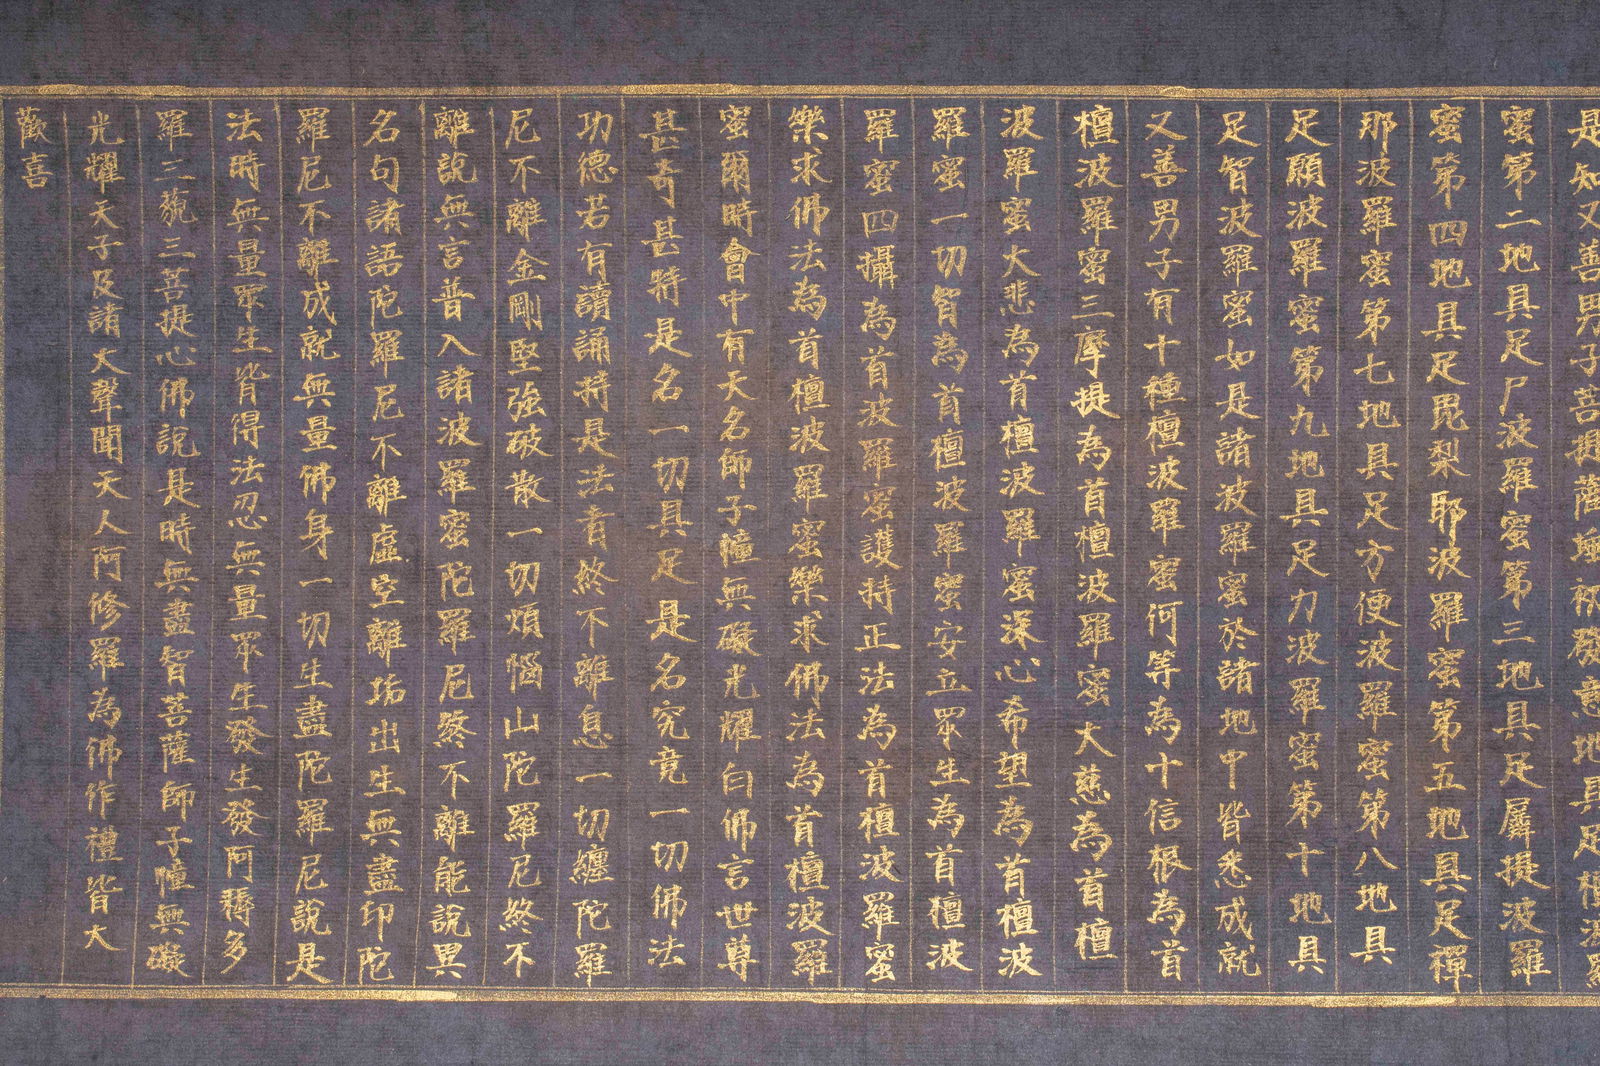 是知又善男子菩提薩埵初發意地具足檀波羅
蜜第二地具足尸波羅蜜第三地具足羼提波羅
蜜第四地具足毘梨耶波羅蜜第五地具足禪
那波羅蜜第七地具足方便波羅蜜第八地具
足願波羅蜜第九地具足力波羅蜜第十地具
足智波羅蜜如是諸波羅蜜於諸地中皆悉成就
又善男子有十種檀波羅蜜何等為十信根為首
檀波羅蜜三摩提為首檀波羅蜜大慈為首檀
波羅蜜大悲為首檀波羅蜜深心希望為首檀波
羅蜜一切智為首檀波羅蜜安立眾生為首檀波
羅蜜四攝為首波羅蜜護持正法為首檀波羅蜜
樂求佛法為首檀波羅蜜樂求佛法為首檀波羅
蜜爾時會中有天名師子幢無礙光耀白佛言世尊
甚奇甚特是名一切具足是名究竟一切佛法
功德若有讀誦持是法者終不離息一切纏陀羅
尼不離金剛堅強破散一切煩惱山陀羅尼終不
離說無言普入諸波羅蜜陀羅尼終不離能說異
名句諸語陀羅尼不離虛空離垢出生無盡印陀
羅尼不離成就無量佛身一切生盡陀羅尼說是
法時無量眾生皆得法忍無量眾生發生發阿耨多
羅三藐三菩提心佛說是時無盡智菩薩師子幢無礙
光耀天子及諸大聲聞天人阿修羅為佛作禮皆大
歡喜